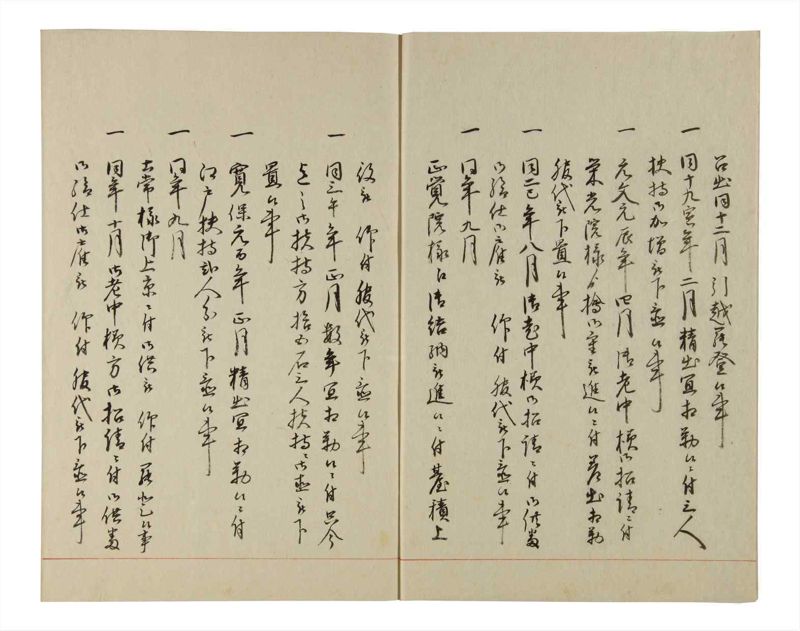 召出同十二月 引越罷登候事
一 同十九寅年十二月精出宜相勤候ニ付三人
扶持御加増被下置候事
一 元文元辰年四月御老中様御招請ニ付
栄光院様 御重被進候ニ付差出相勤
銀代被下置候事
一 同二巳年八月御老中様御招請ニ付御供番
御給仕御雇被 仰付銀代被下置候事
一 同年九月
正覚院様江御結納被進候ニ付 積上
役被 仰付銀代被下置候事
一 同三午年正月数年宜相勤候ニ付只今
迄之御扶持方拾五石三人扶持ニ御直被下
置候事
一 寛保元酉年正月精出宜相勤候ニ付
江戸扶持 人分被下置候事
一 同年九月
 様御上京ニ付御供被 仰付罷登候事
一 同年十月御老中様方御招請ニ付御供番
御給仕御雇被 仰付銀代被下置候事